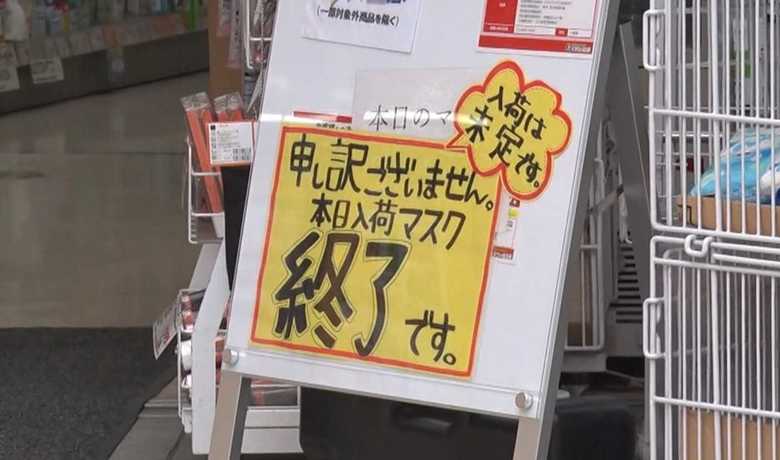 (一部対象外商品を除く)
本日のマ
入荷は
未定です。
申し訳ございません。
本日入荷マスク
終了です。